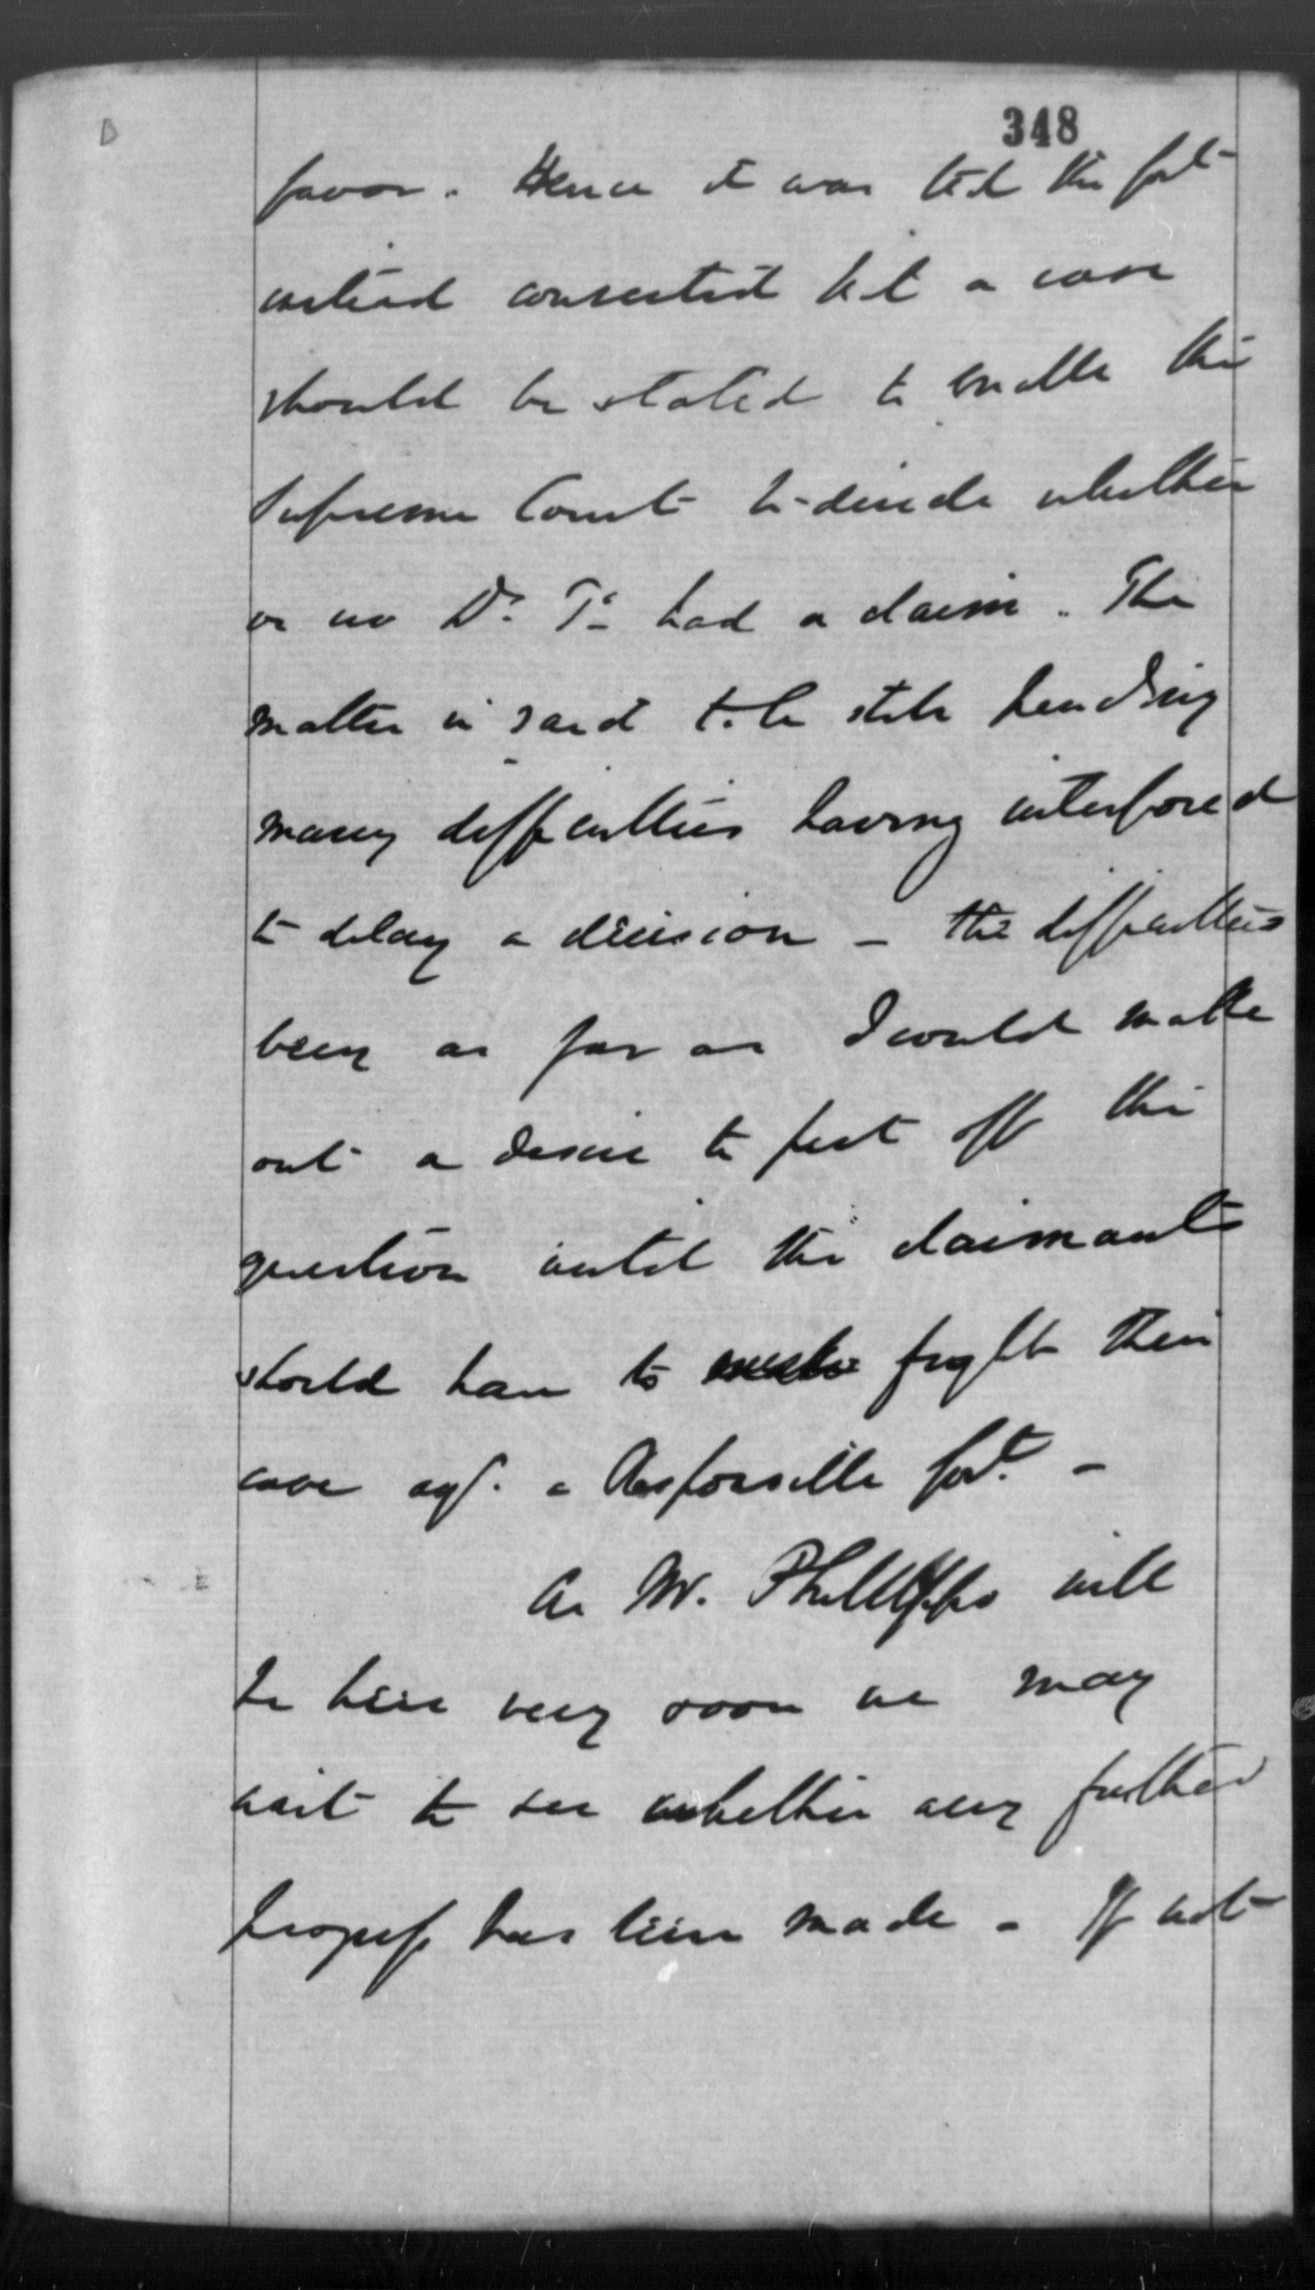 348
favor. Hence it was that the Govt
instead consented that a case
should be stated to enable the
Supreme Court to decide whether
or no Dr. T. had a claim. The
matter is said to be still pending
many difficulties having interfered
to delay a decision – the difficulties
being as far as I could make
out a desire to put off the
question until the claimants
should have to fight their
case agt. a Responsible Govt. –
As Mr. Phillippo will
be here very soon we may
wait to see whether any further
progress has been made – If not